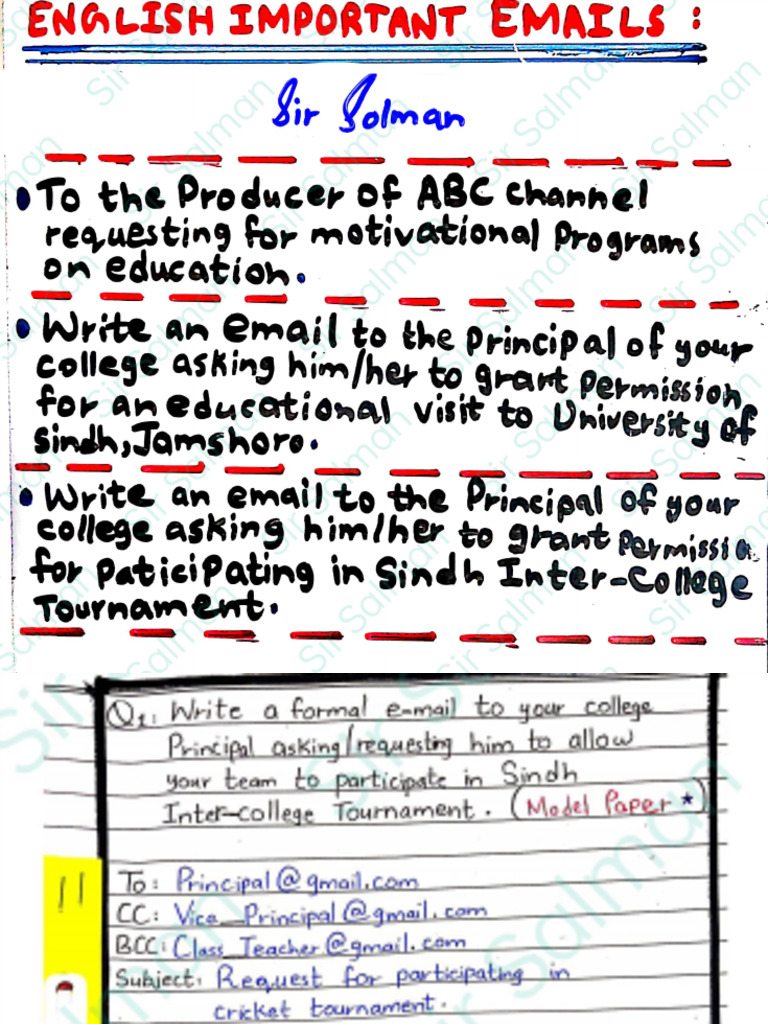 ENGLISH IMPORTANT EMAILS :
Sir Salman
• To the Producer of ABC channel
requesting for motivational Programs
on education.
• Write an email to the Principal of your
college asking him/her to grant Permission
for an educational visit to University of
Sindh, Jamshoro.
• Write an email to the Principal of your
college asking him/her to grant Permissio
for Paticipating in Sindh Inter-College
Tournament.
Q1: Write a formal e-mail to your college
Principal asking/requesting him to allow
your team to participate in Sindh
Inter-college Tournament. (Model Paper *)
11
To: Principal@gmail.com
CC: Vice_Principal@gmail.com
BCC: Class_Teacher@gmail.com
Subject: Request for participating in
cricket tournament.